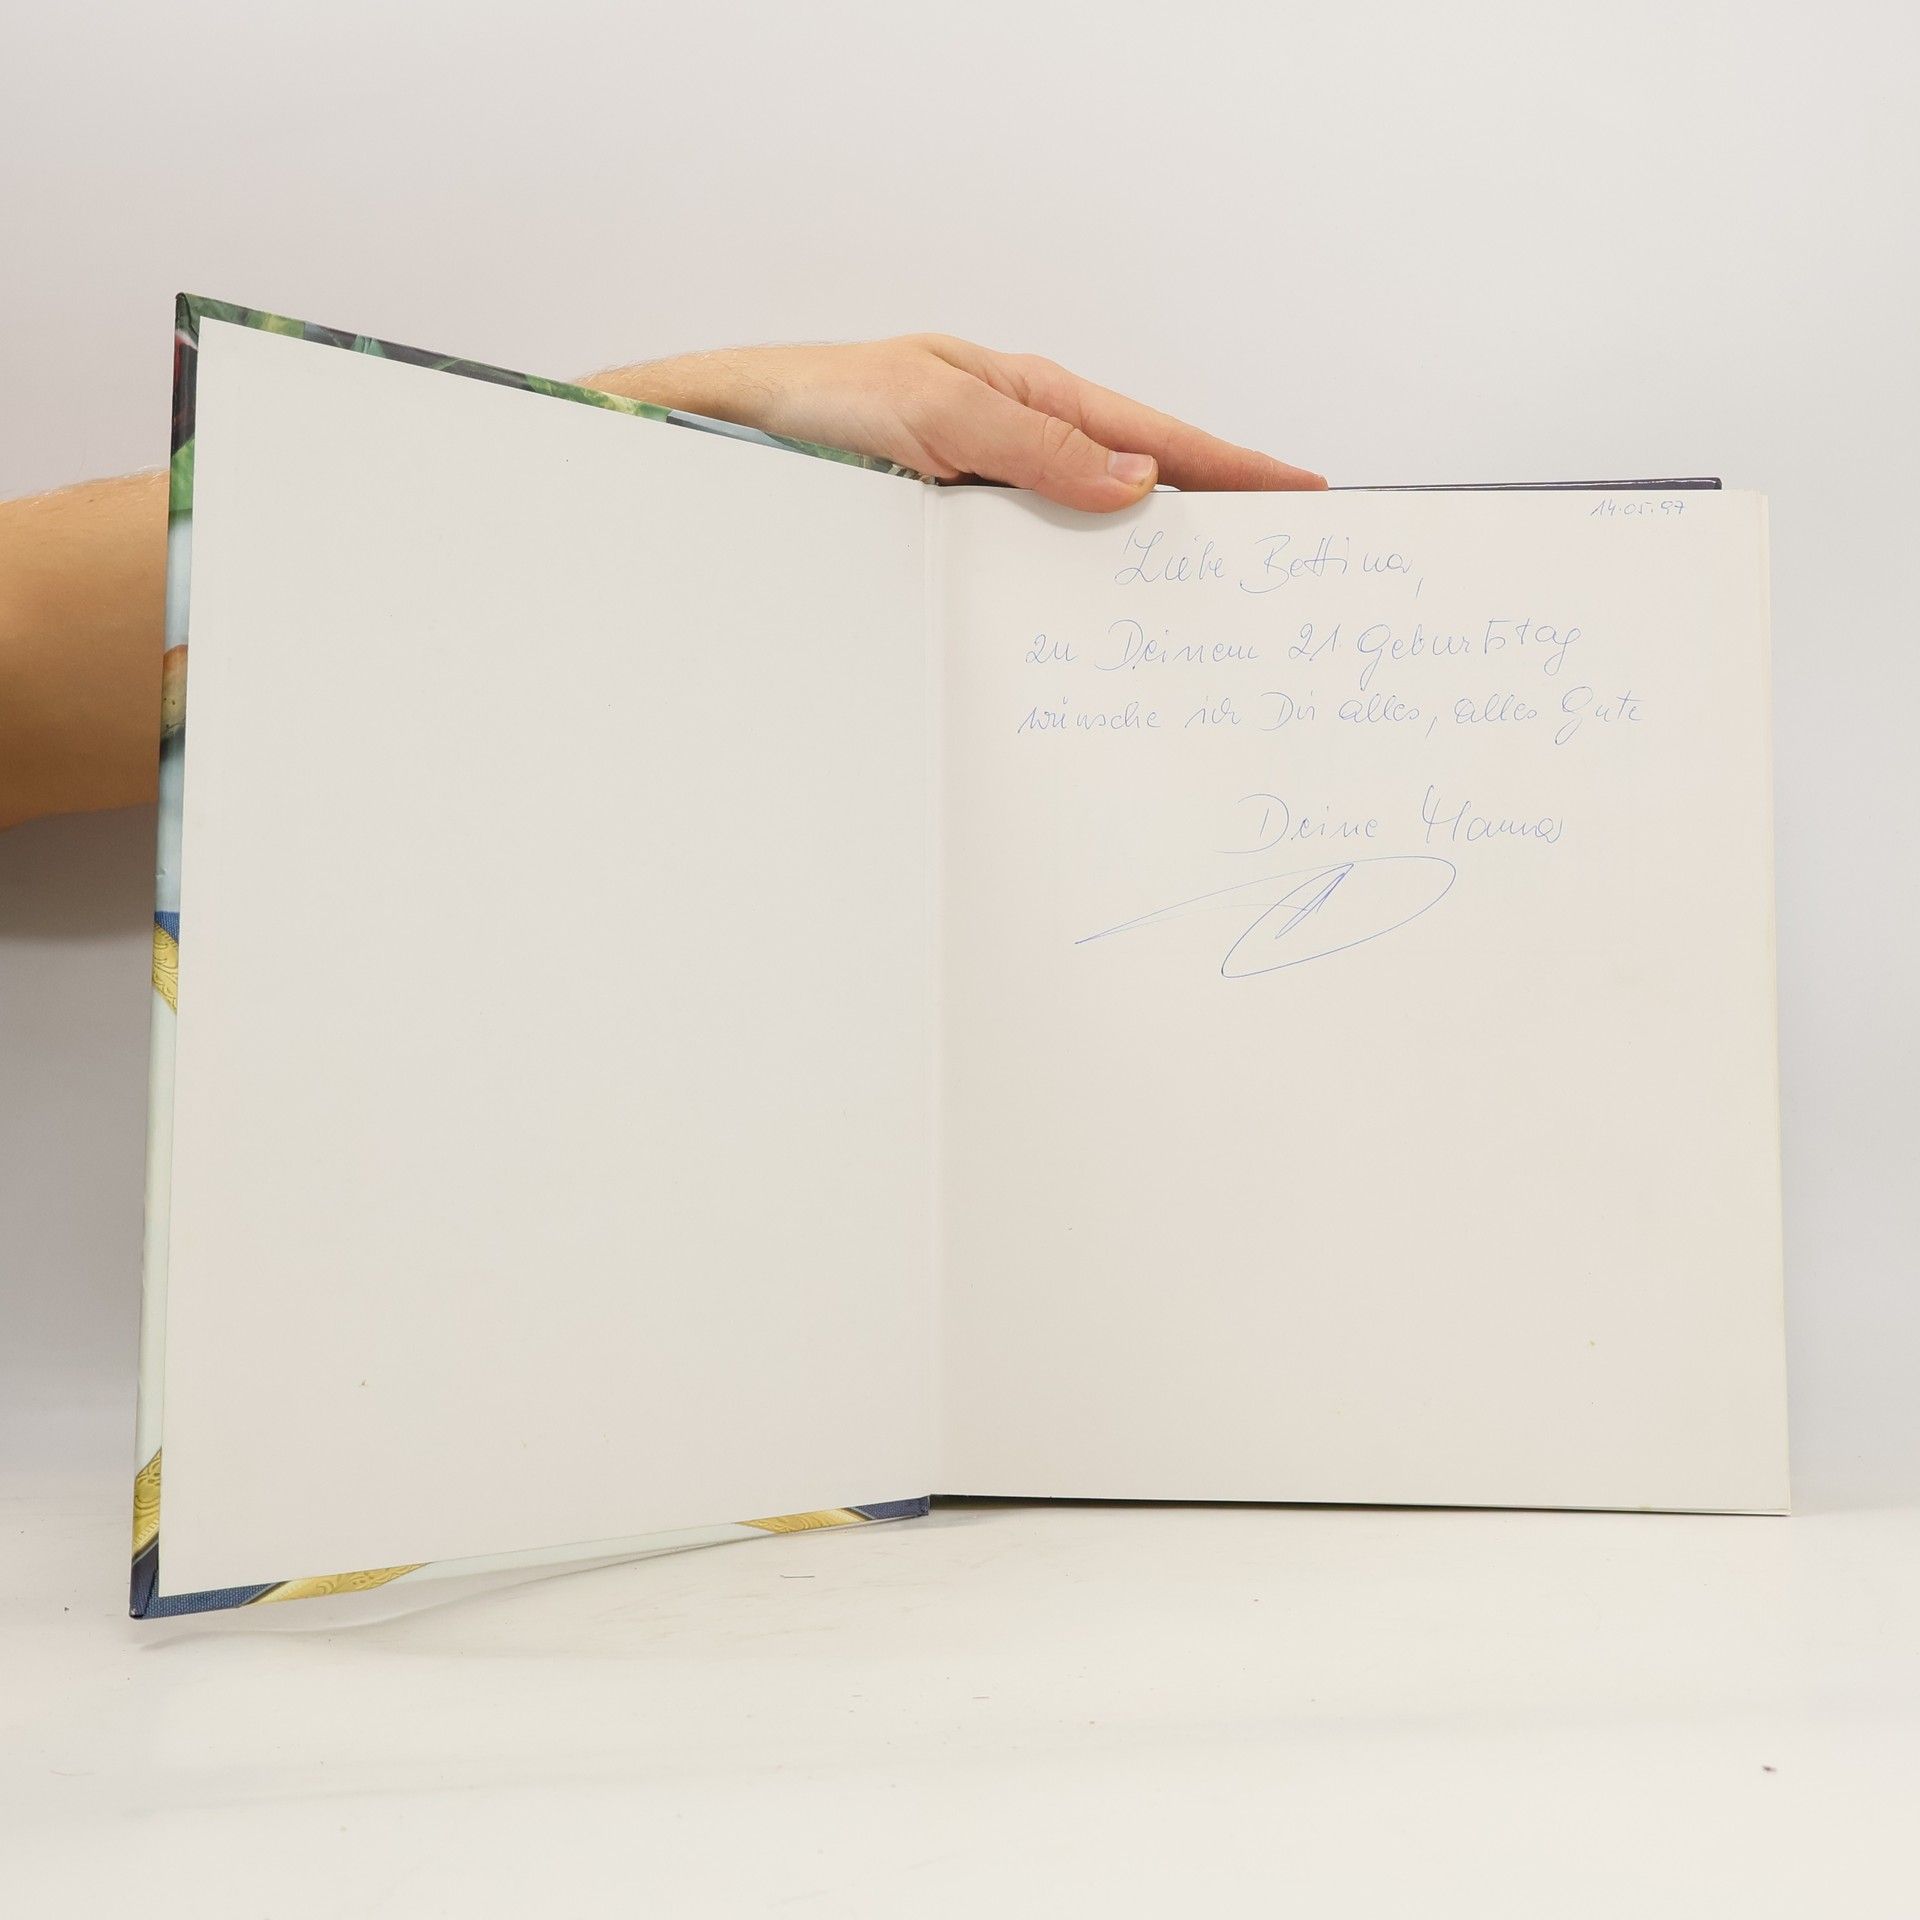 14.05.97
Liebe Bettina,
zu Deinem 21 Geburtstag
wünsche ich Dir alles, alles Gute
Deine Hanna